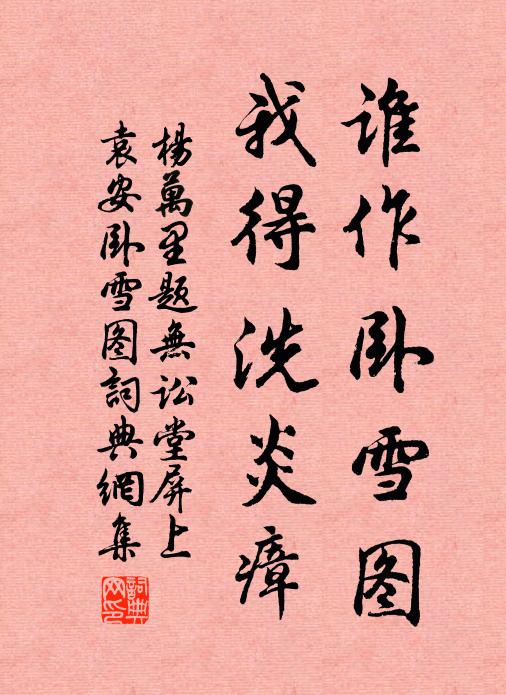 谁作卧雪图
我得洗炎瘴
杨萬里题無讼堂屏上
袁安卧雪图詞典網集
詞典网印